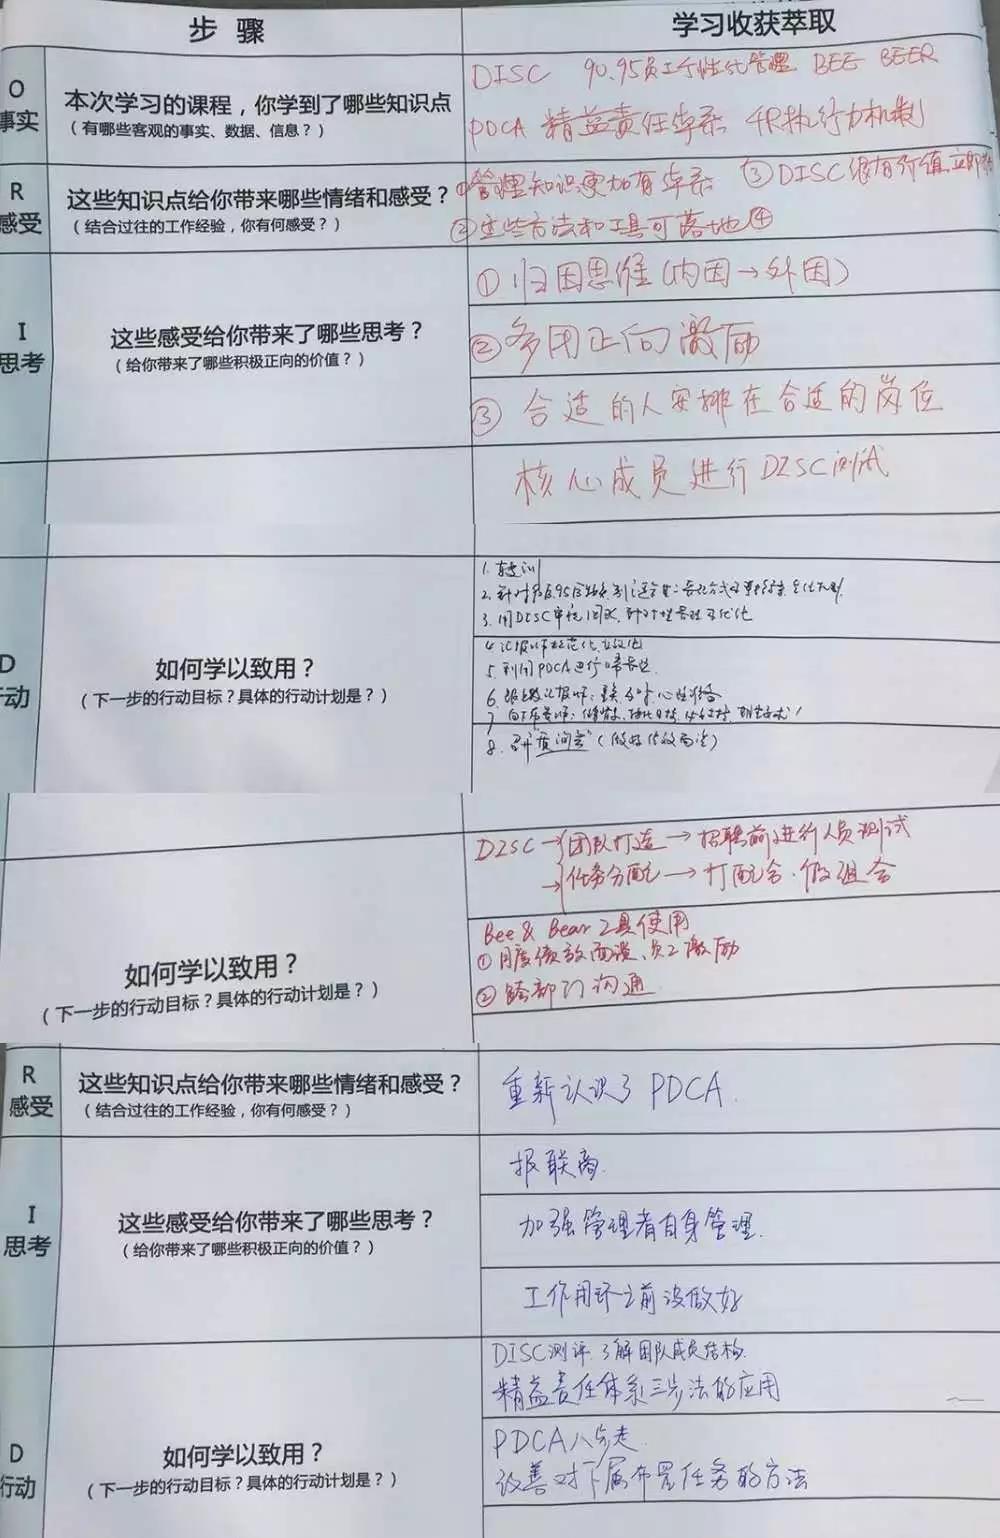 步骤
学习收获萃取
O
事实
本次学习的课程，你学到了哪些知识点
（有哪些客观的事实、数据、信息？）
DISC 90.95员工个性化管理 BEE BEER
PDCA 精益责任体系 4R执行力机制
R
感受
这些知识点给你带来哪些情绪和感受？
（结合过往的工作经验，你有何感受？）
①管理知识更加有体系 ③DISC很有价值立即
②这些方法和工具可落地④
I
思考
这些感受给你带来了哪些思考？
（给你带来了哪些积极正向的价值？）
①归因思维（内因→外因）
②多用正向激励
③合适的人安排在合适的岗位
核心成员进行DISC测试
D
行动
如何学以致用？
（下一步的行动目标？具体的行动计划是？）
1.
2.
3.用DISC
4.
5.利用PDCA进行
6.
7
8.
DISC→团队打造→招聘前进行人员测试
→任务分配→打配合.做组合
如何学以致用？
（下一步的行动目标？具体的行动计划是？）
Bee & Bear工具使用
①月度绩效面谈、员工激励
②跨部门沟通
R
感受
这些知识点给你带来哪些情绪和感受？
（结合过往的工作经验，你有何感受？）
重新认识了PDCA.
I
思考
这些感受给你带来了哪些思考？
（给你带来了哪些积极正向的价值？）
报联商.
加强管理者自身管理.
工作闭环之前没做好
D
行动
如何学以致用？
（下一步的行动目标？具体的行动计划是？）
DISC测评.了解团队成员结构.
精益责任体系三步法的应用
PDCA八步走.
改善对下属布置任务的方法